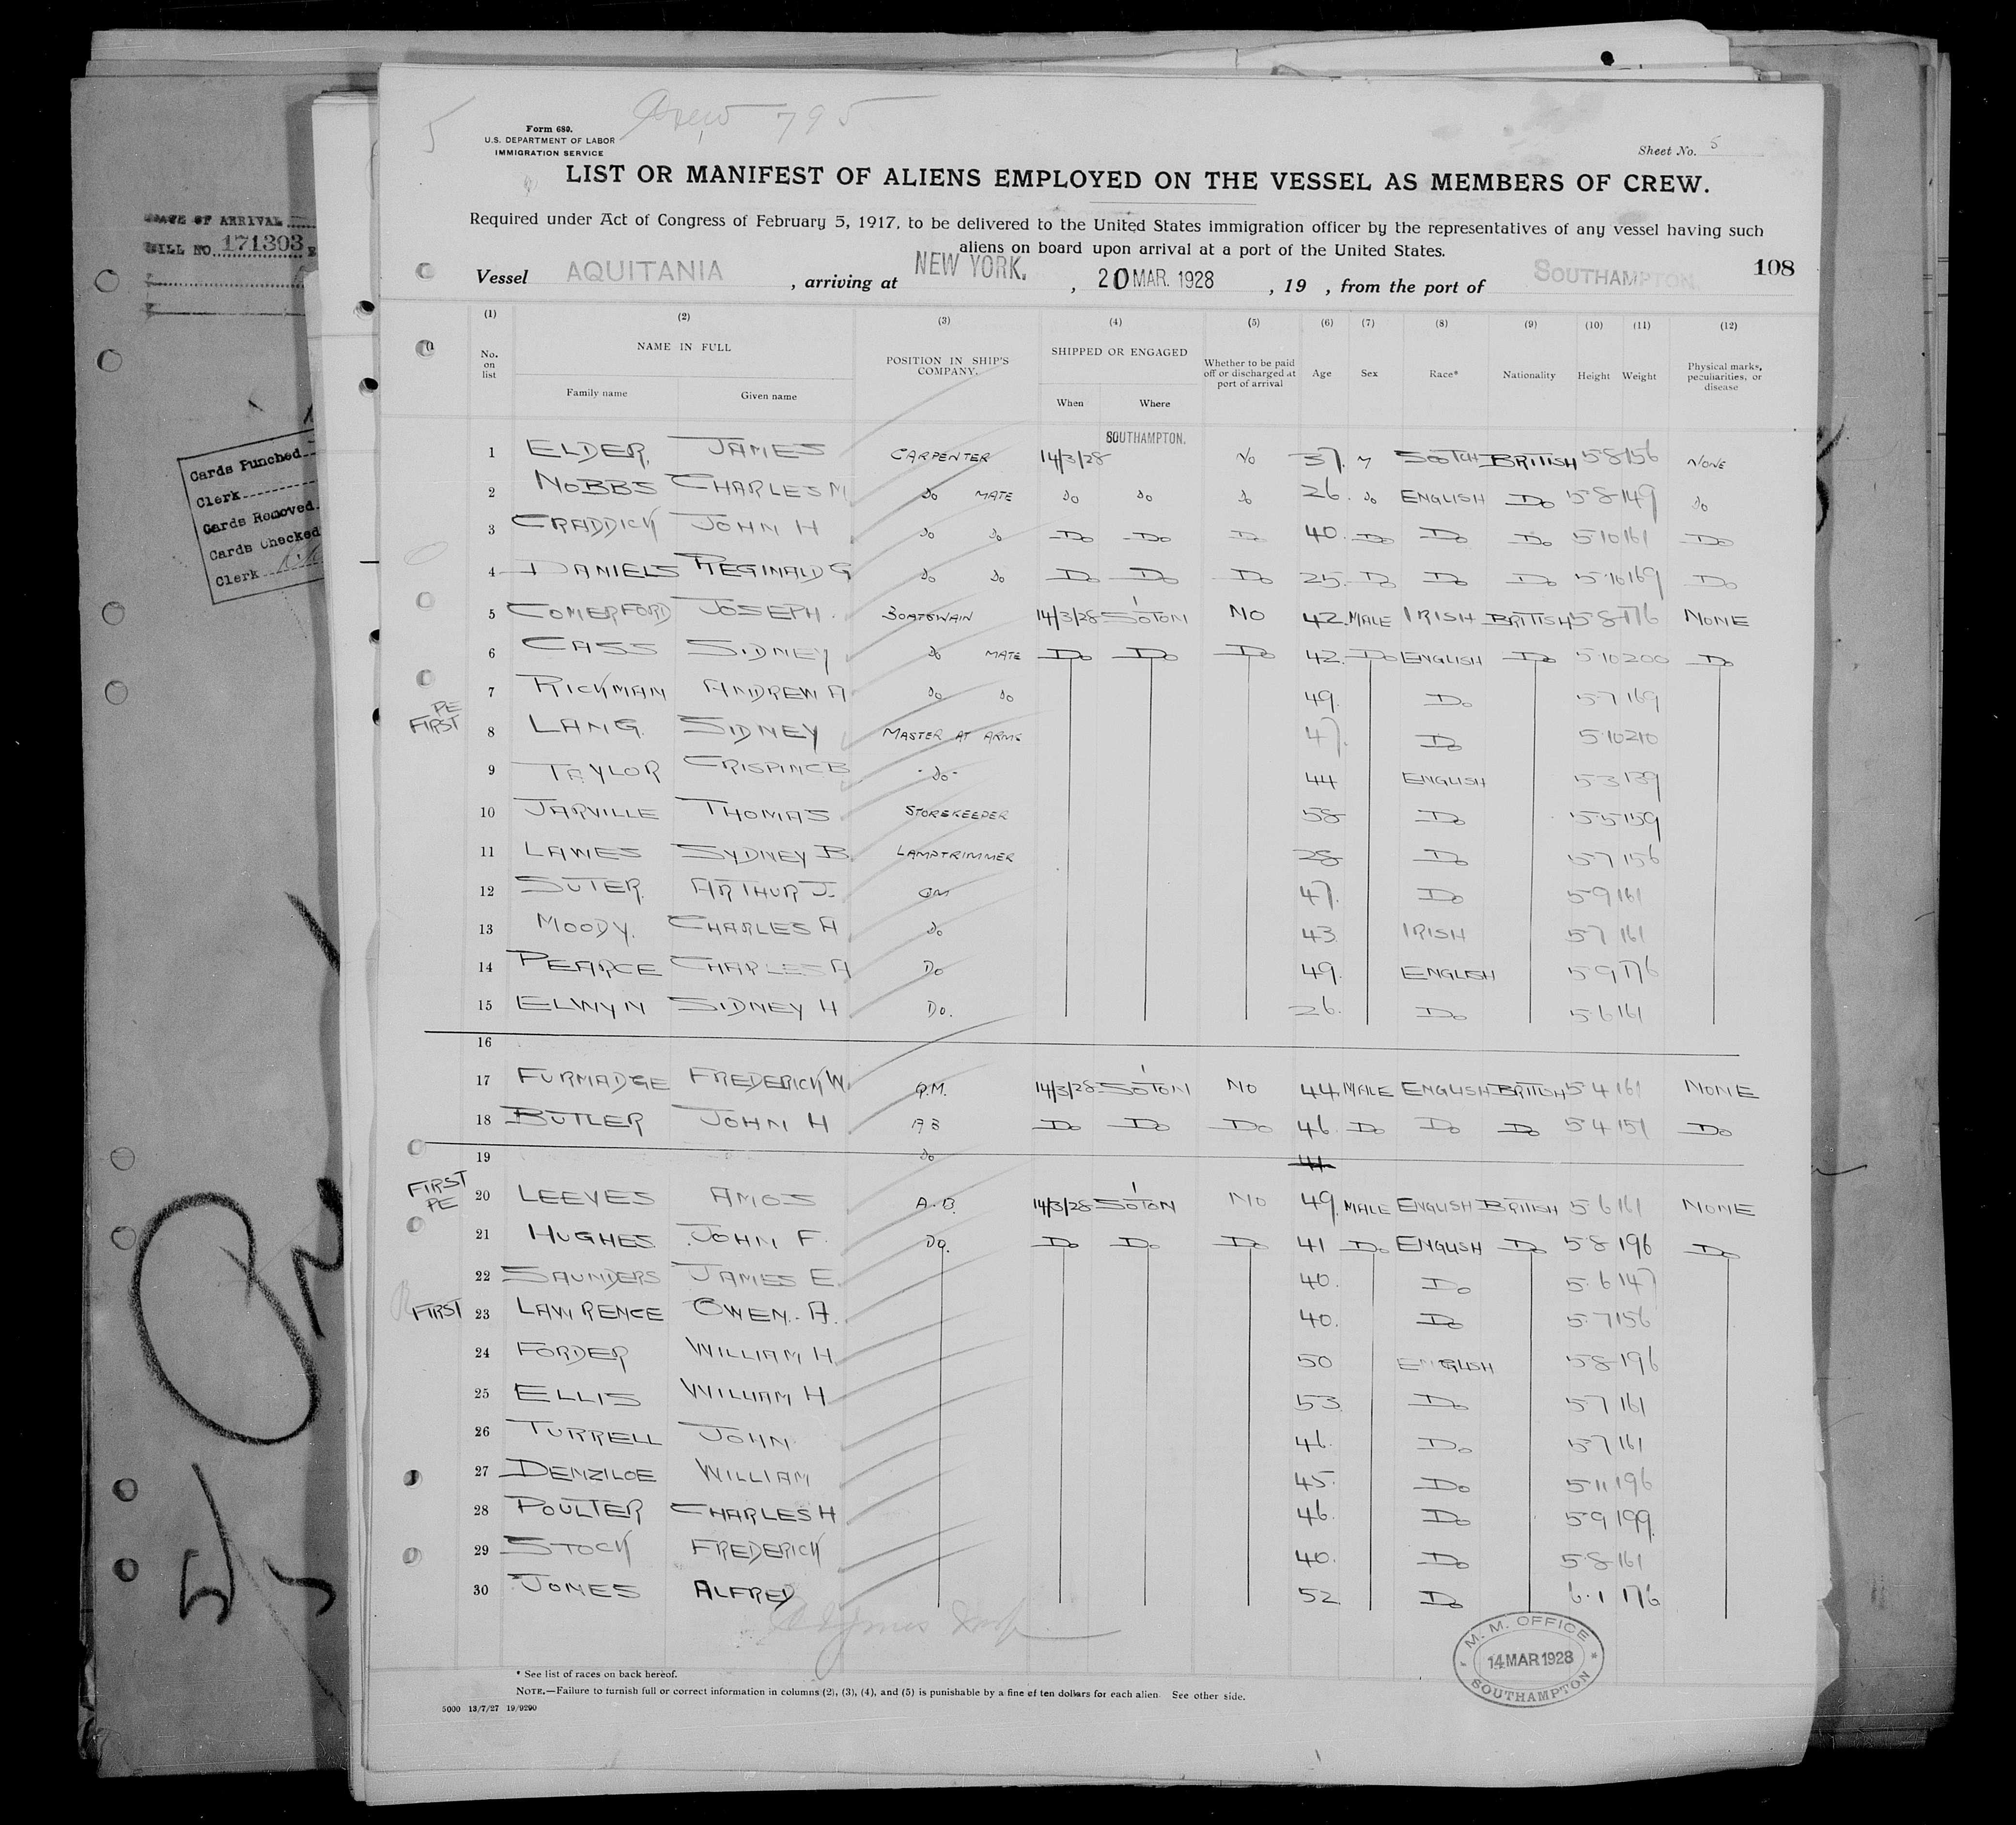 5
Crew 795
Form 680.
U.S. DEPARTMENT OF LABOR
IMMIGRATION SERVICE
Sheet No. 5
LIST OR MANIFEST OF ALIENS EMPLOYED ON THE VESSEL AS MEMBERS OF CREW.
Required under Act of Congress of February 5, 1917, to be delivered to the United States immigration officer by the representatives of any vessel having such
aliens on board upon arrival at a port of the United States.
108
Vessel AQUITANIA, arriving at NEW YORK., 20 MAR. 1928, 19 , from the port of SOUTHAMPTON.
(1) (2) (3) (4) (5) (6) (7) (8) (9) (10) (11) (12)
No. on list NAME IN FULL Family name Given name POSITION IN SHIP'S COMPANY. SHIPPED OR ENGAGED When Where Whether to be paid off or discharged at port of arrival Age Sex Race* Nationality Height Weight Physical marks, peculiarities, or disease
SOUTHAMPTON.
1 ELDER, JAMES CARPENTER 14/3/28 No 37. M SCOTCH BRITISH 5 8 156 NONE
2 NOBBS CHARLES M do MATE do do do 26. do ENGLISH Do 5 8 149 do
3 CRADDICK JOHN H do do Do Do Do 40. Do Do Do 5 10 161 Do
4 DANIELS REGINALD G do do Do Do Do 25. Do Do Do 5 10 169 Do
5 COMERFORD JOSEPH. BOATSWAIN 14/3/28 S'OTON NO 42. MALE IRISH BRITISH 5 8 176 NONE
6 CASS SIDNEY do MATE Do Do Do 42. Do ENGLISH Do 5 10 200 Do
7 RICKMAN ANDREW A do do 49. Do 5 7 169
PE
FIRST
8 LANG. SIDNEY MASTER AT ARMS 47. Do 5 10 210
9 TAYLOR CRISPIN C B -do- 44 ENGLISH 5 3 139
10 JARVILLE THOMAS STOREKEEPER 58 Do 5 5 159
11 LAWES SYDNEY B. LAMPTRIMMER 28 Do 5 7 156
12 SUTER. ARTHUR J. QM 47. Do 5 9 161
13 MOODY. CHARLES A do 43 IRISH 5 7 161
14 PEARCE CHARLES A Do 49. ENGLISH 5 9 176
15 ELWYN SIDNEY H Do. 26. Do 5 6 161
16
17 FURMADGE FREDERICK W. Q.M. 14/3/28 S'OTON NO 44. MALE ENGLISH BRITISH 5 4 161 NONE
18 BUTLER JOHN H AB Do Do Do 46. Do Do Do 5 4 151 Do
19 do 41
FIRST
PE
20 LEEVES AMOS A.B. 14/3/28 S'OTON NO 49. MALE ENGLISH BRITISH 5 6 161 NONE
21 HUGHES JOHN F. Do. Do Do Do 41 Do ENGLISH Do 5 8 196 Do
22 SAUNDERS JAMES E. 40. Do 5 6 147
FIRST 23 LAWRENCE OWEN. A. 40. Do 5 7 156
24 FORDER WILLIAM H. 50 ENGLISH 5 8 196
25 ELLIS WILLIAM H 53 Do 5 7 161
26 TURRELL JOHN 46. Do 5 7 161
27 DENZILOE WILLIAM 45. Do 5 11 196
28 POULTER CHARLES H 46. Do 5 9 199.
29 STOCK FREDERICK 40. Do 5 8 161
30 JONES ALFRED 52 Do 6.1 176
M. M. OFFICE
14 MAR 1928
SOUTHAMPTON
* See list of races on back hereof.
NOTE.—Failure to furnish full or correct information in columns (2), (3), (4), and (5) is punishable by a fine of ten dollars for each alien. See other side.
5000 13/7/27 19/9290
OF ARRIVAL
BILL NO. 171303
Cards Punched
Clerk
Cards Removed
Cards Checked
Clerk